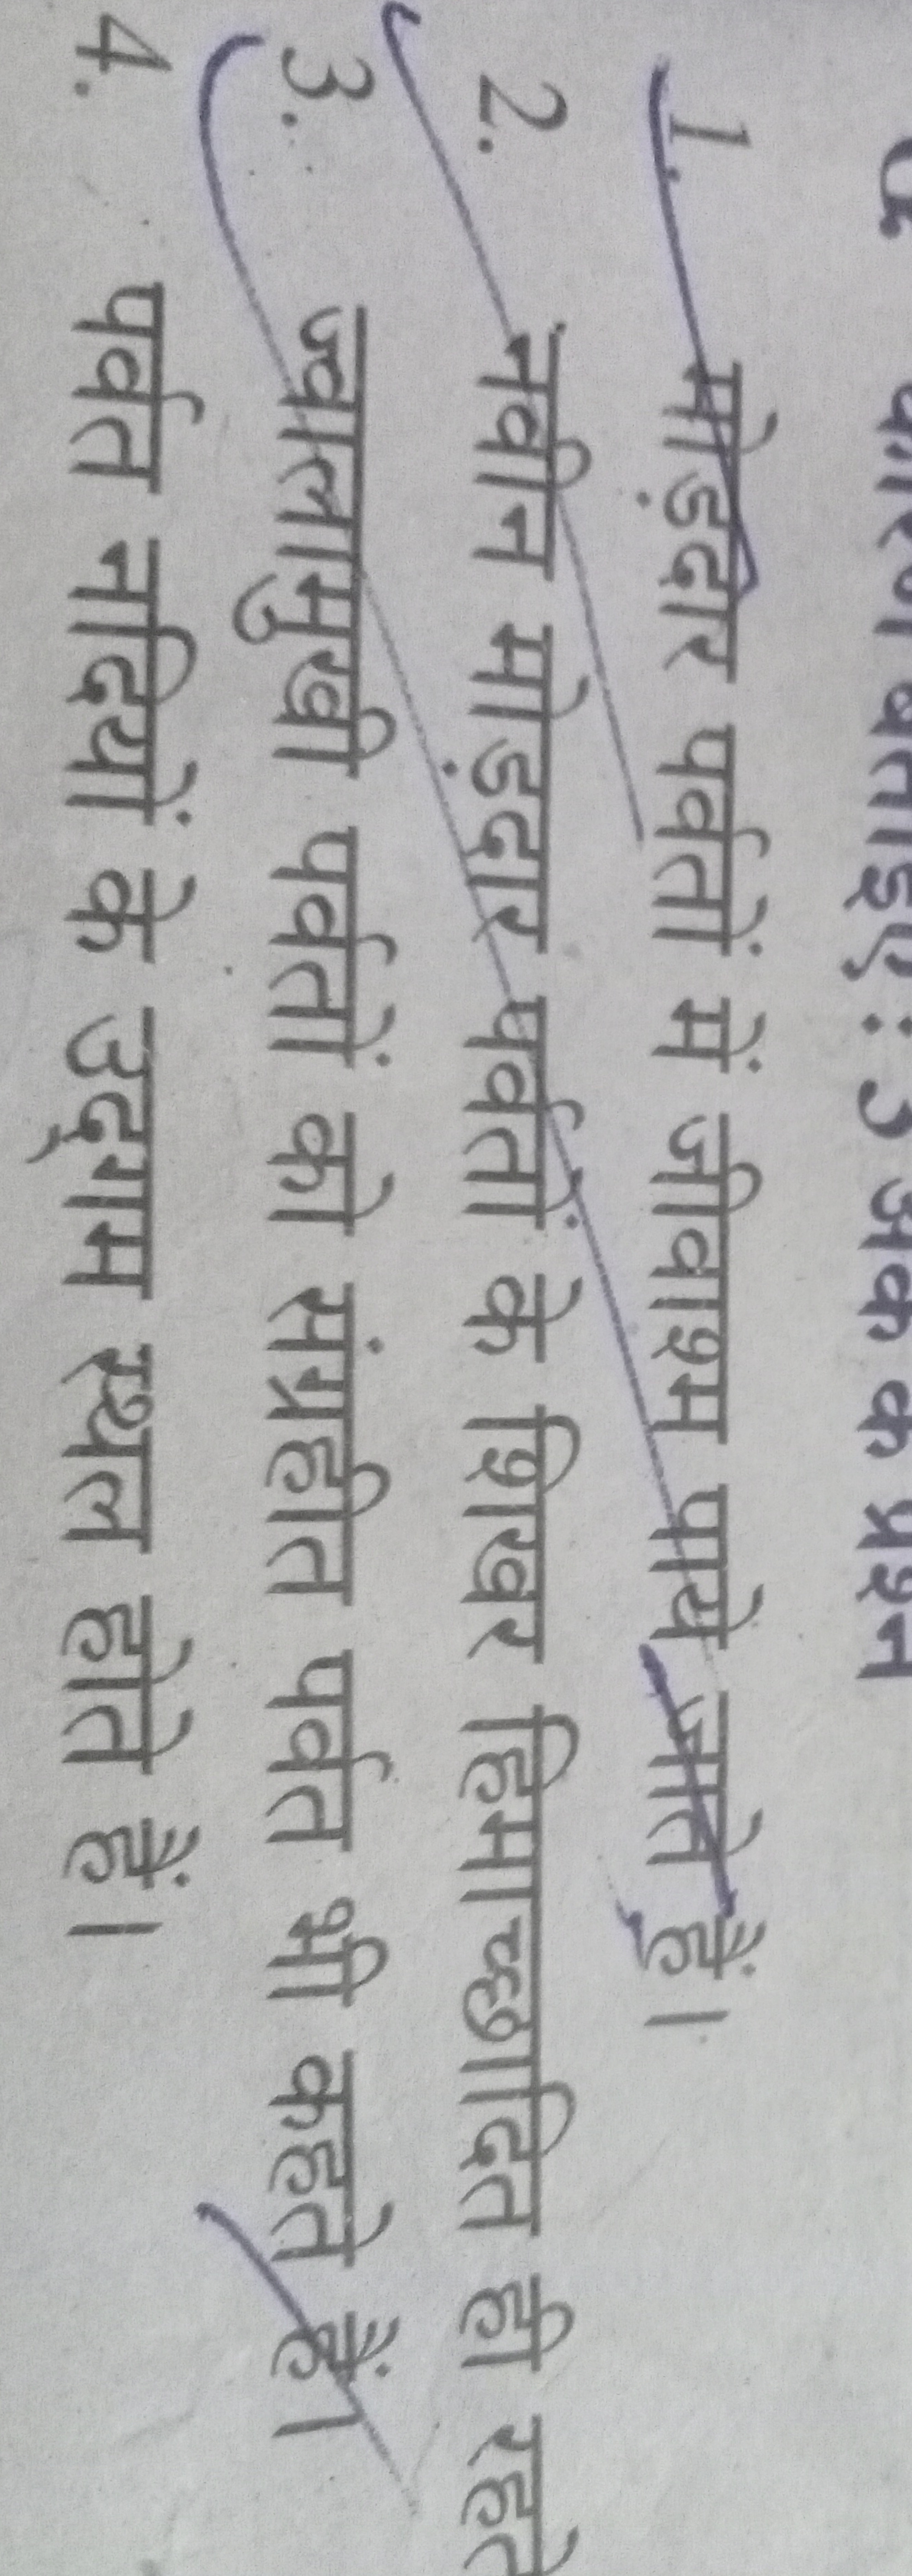 कारण बताइए : 3 अंक के प्रश्न
1. मोड़दार पर्वतों में जीवाश्म पाये जाते हैं।
2. नवीन मोड़दार पर्वतों के शिखर हिमाच्छादित ही रहते
3. ज्वालामुखी पर्वतों को संग्रहीत पर्वत भी कहते हैं।
4. पर्वत नदियों के उद्गम स्थल होते हैं।